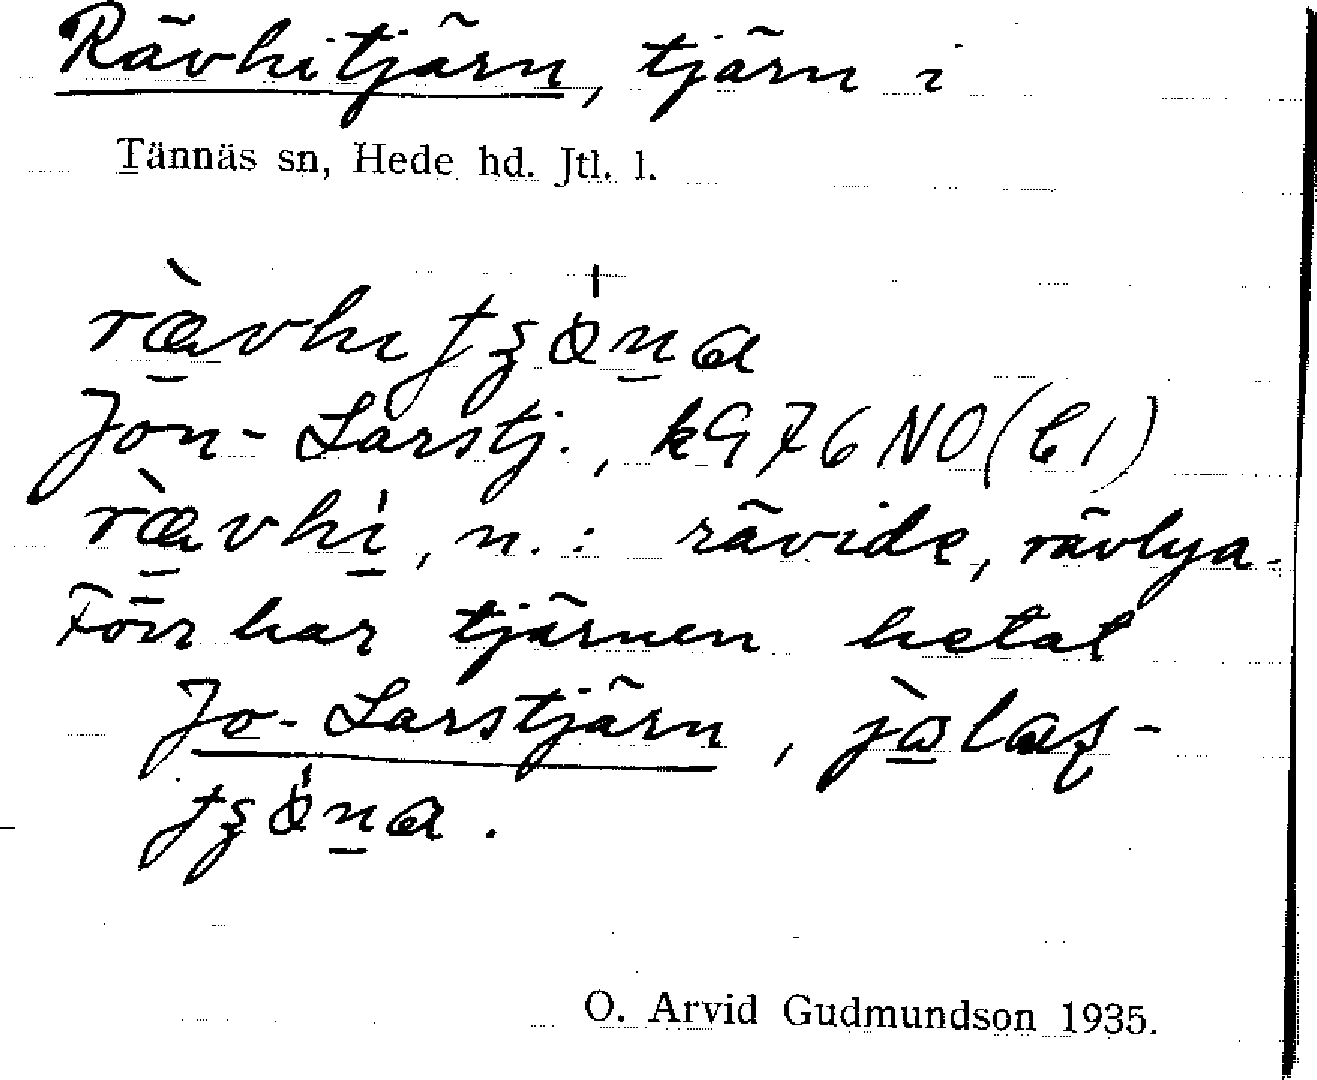 Rävhitjärn, tjärn i
Tännäs sn, Hede hd. Jtl. l.
ræ̀vhitʂö́na
Jon-Larstj., kG76NO(b1)
ræ̀vhi, n.: rävide, rävlya.
Förr har tjärnen hetat
Jo-Larstjärn, jòlaʂ-
tʂö́na.
O. Arvid Gudmundson 1935.